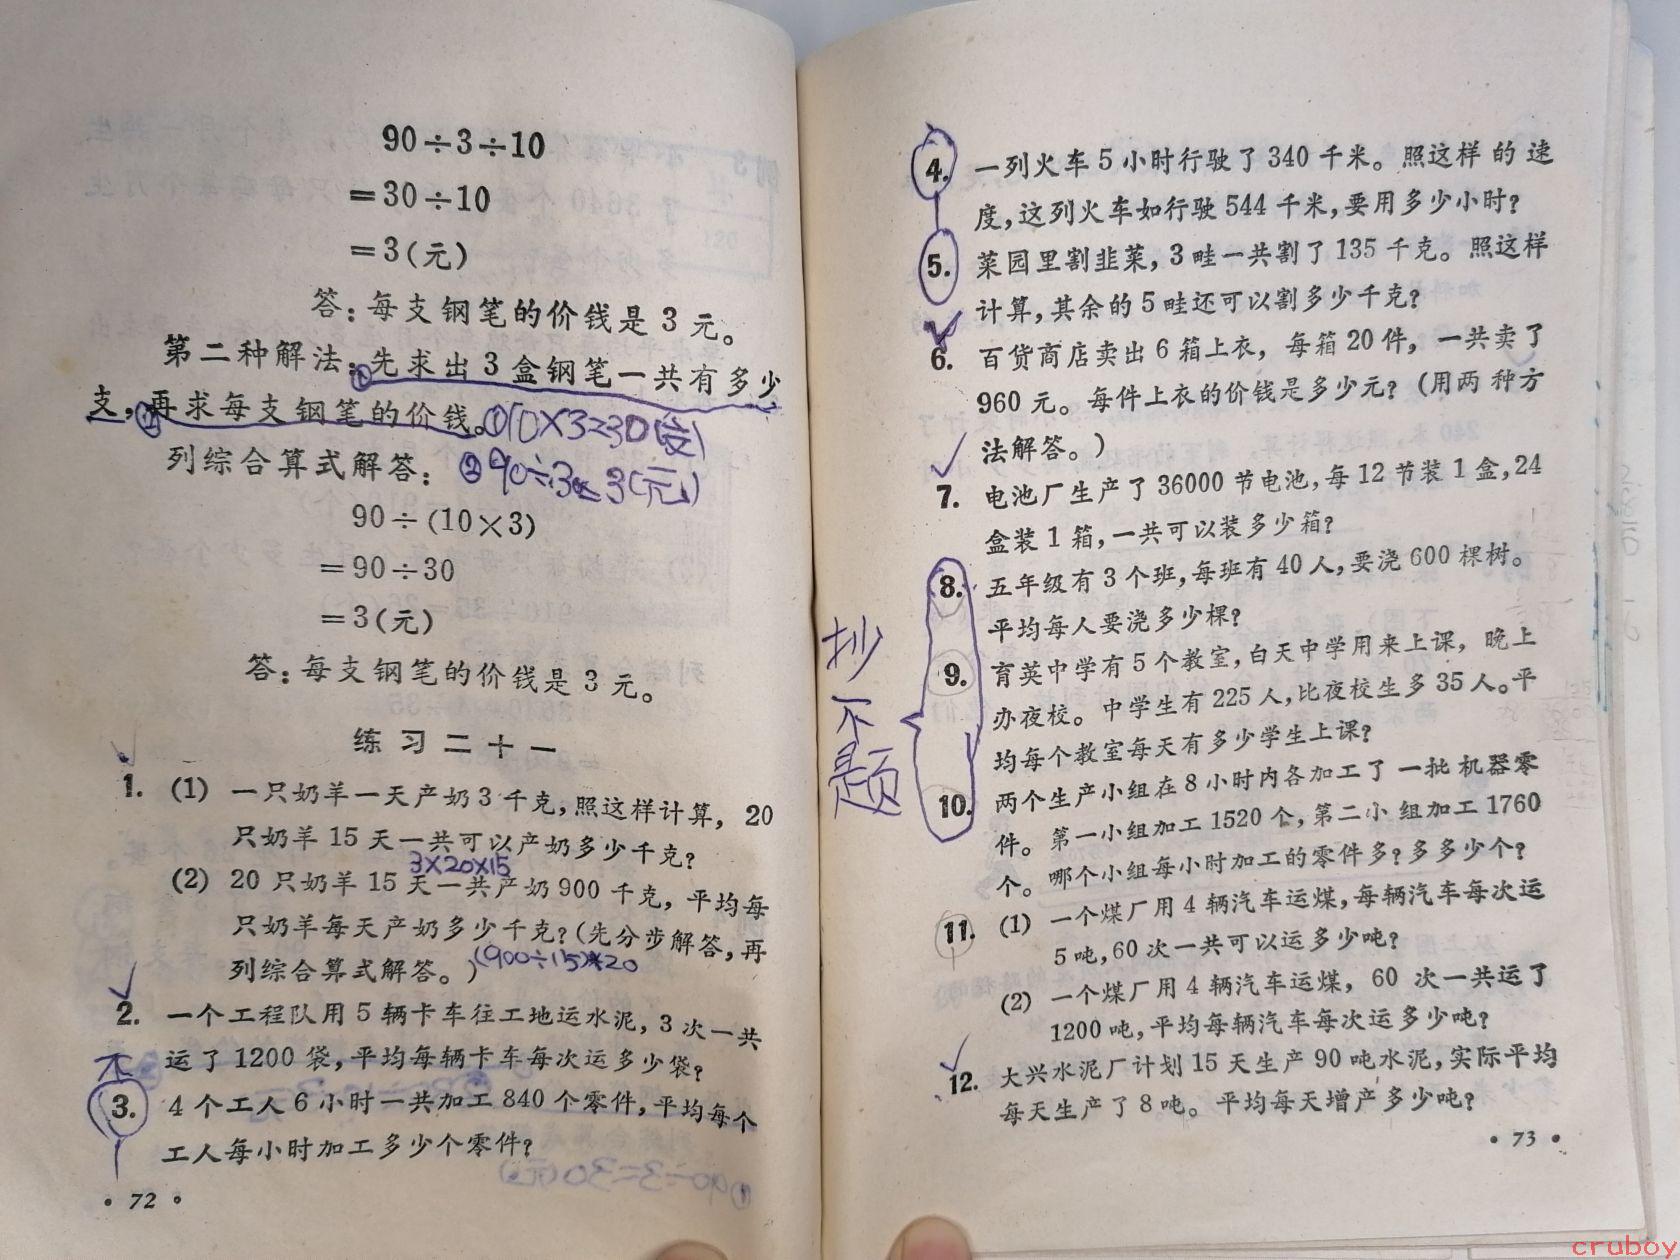 90÷3÷10
=30÷10
=3(元)
答:每支钢笔的价钱是 3 元。
第二种解法:①先求出 3 盒钢笔一共有多少
支,②再求每支钢笔的价钱。①10×3=30(支)
列综合算式解答: ②90÷3= 3(元)
90÷(10×3)
=90÷30
=3(元)
答:每支钢笔的价钱是 3 元。
练习二十一
1. (1) 一只奶羊一天产奶 3 千克,照这样计算, 20
只奶羊 15 天一共可以产奶多少千克?
3×20×15
(2) 20 只奶羊 15 天一共产奶 900 千克,平均每
只奶羊每天产奶多少千克?(先分步解答,再
列综合算式解答。)(900÷15)÷20
2. 一个工程队用 5 辆卡车往工地运水泥, 3 次一共
运了 1200 袋,平均每辆卡车每次运多少袋?
不
3. 4 个工人 6 小时一共加工 840 个零件,平均每个
工人每小时加工多少个零件?
• 72 •
4. 一列火车 5 小时行驶了 340 千米。照这样的速
度,这列火车如行驶 544 千米,要用多少小时?
5. 菜园里割韭菜, 3 畦一共割了 135 千克。照这样
计算,其余的 5 畦还可以割多少千克?
6. 百货商店卖出 6 箱上衣, 每箱 20 件, 一共卖了
960 元。每件上衣的价钱是多少元? (用两种方
法解答。)
7. 电池厂生产了 36000 节电池,每 12 节装 1 盒,24
盒装 1 箱,一共可以装多少箱?
8. 五年级有 3 个班,每班有 40 人,要浇 600 棵树。
平均每人要浇多少棵?
抄不题
9. 育英中学有 5 个教室,白天中学用来上课, 晚上
办夜校。中学生有 225 人,比夜校生多 35 人。平
均每个教室每天有多少学生上课?
10. 两个生产小组在 8 小时内各加工了一批机器零
件。第一小组加工 1520 个,第二小组加工 1760
个。哪个小组每小时加工的零件多?多多少个?
11. (1) 一个煤厂用 4 辆汽车运煤,每辆汽车每次运
5 吨,60 次一共可以运多少吨?
(2) 一个煤厂用 4 辆汽车运煤, 60 次一共运了
1200 吨,平均每辆汽车每次运多少吨?
12. 大兴水泥厂计划 15 天生产 90 吨水泥,实际平均
每天生产了 8 吨。平均每天增产多少吨?
• 73 •
cruboy